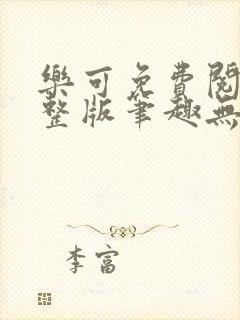 樂可免費閱
整版筆趣無
李富